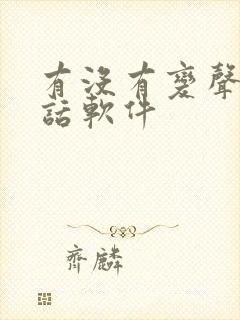 有没有變聲
話軟件
齊麟